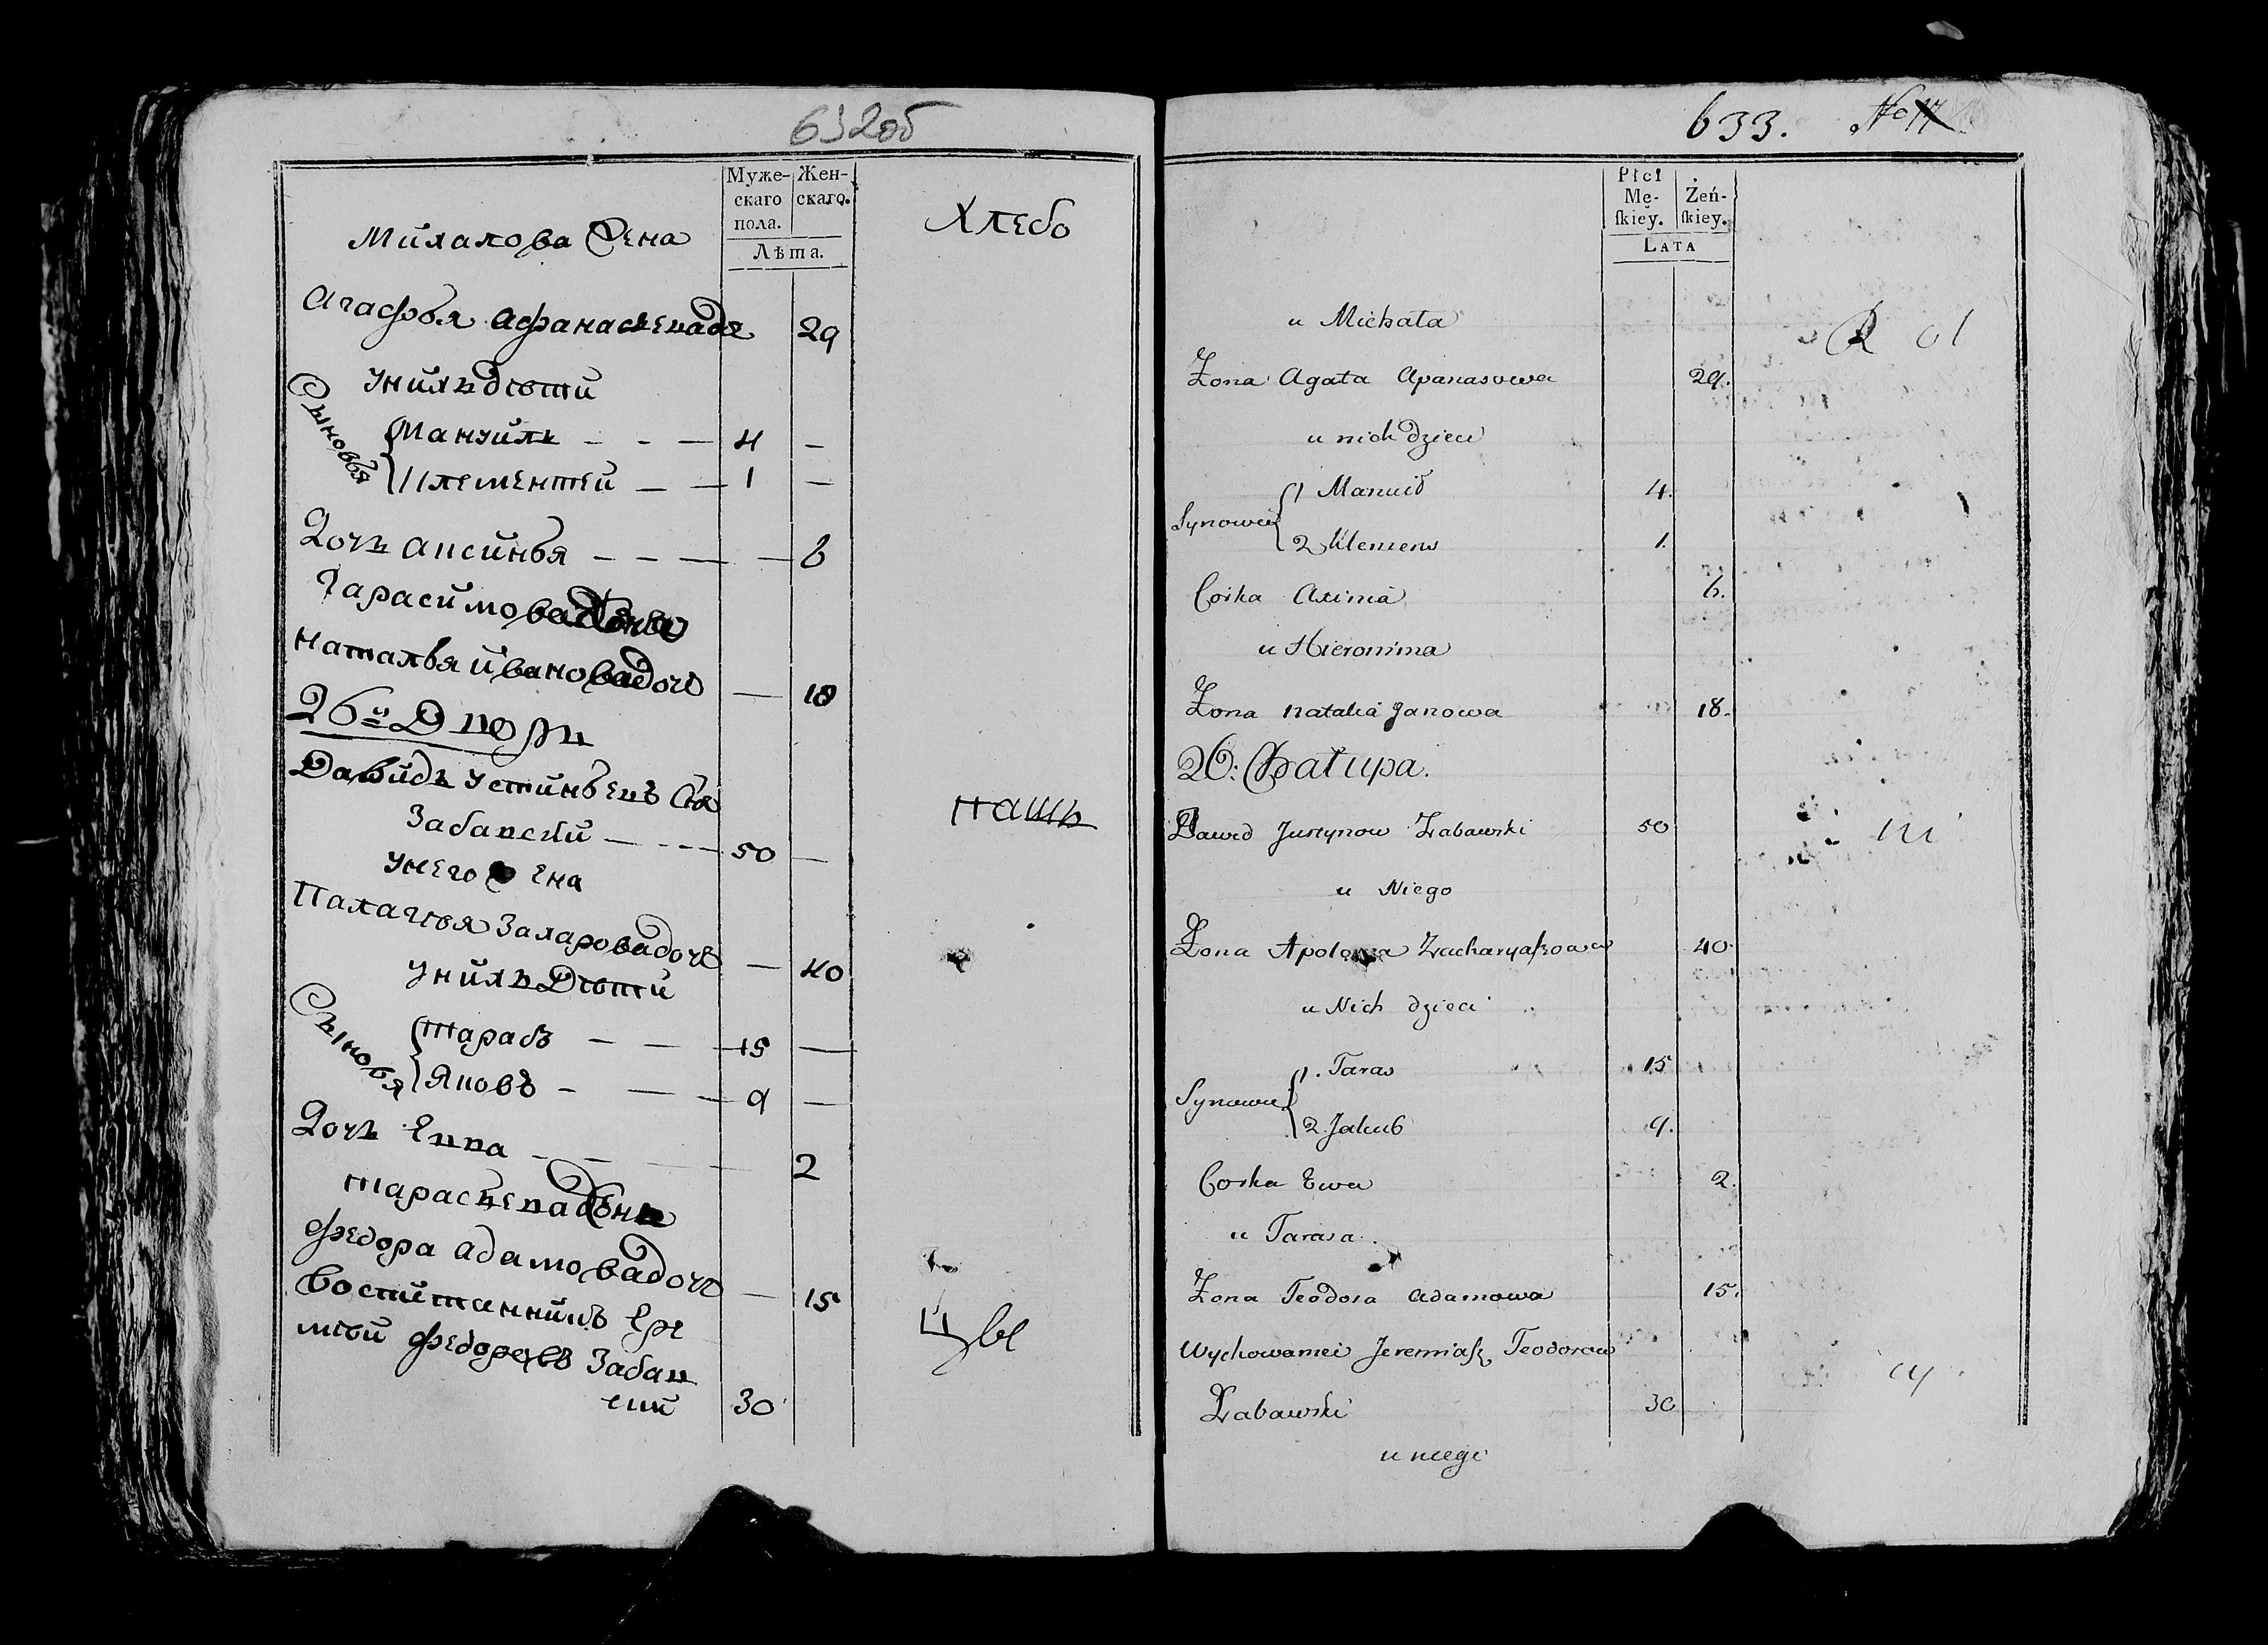 632об
Муже-
скаго
пола.
Жен-
скаго.
Лѣта.
Хлебо
Михалова Жена
Агафья Афанасьева доч 29
у нихъ дѣти
Сыновья
Мануилъ — — — 4 —
Клементей — — 1 —
Дочь Аксинья — — — — 6
Гарасимова Жена
Наталья Иванова доч — 18
26й Дворъ
Давидъ Устиновъ Сн
Забавскій — - - - 50 —
пашъ
у него Жена
Палагѣя Захарова доч — 40
у нихъ Дѣти
Сыновя
Тарасъ — — — 15 —
Яковъ - — — 9 —
Дочь Евва - - - 2
Тарасьева Жена
Федора Адамова доч — 15
цы
Воспитанникъ Ере
мѣй Федоровъ Забав
скій 30
633. No 17
Płci
Mę-
skiey.
Żeń-
skiey.
LATA
u Michała
Żona Agata Apanasowa 29.
u nich dzieci
Synowie
1 Manuił 4.
2 Klemens 1.
Corka Axinia 6.
u Hieronima
Żona Natalia Janowa 18.
26: Chałupa.
Dawid Justynow Zabawski 50
u Niego
Żona Apolonia Zacharyaszowa 40.
u Nich dzieci
Synowie
1. Taras 15
2. Jakub 9.
Corka Ewa 2.
u Tarasa
Żona Teodora Adamowa 15.
Wychowaniec Jeremiasz Teodorow
Zabawski 30
u niego